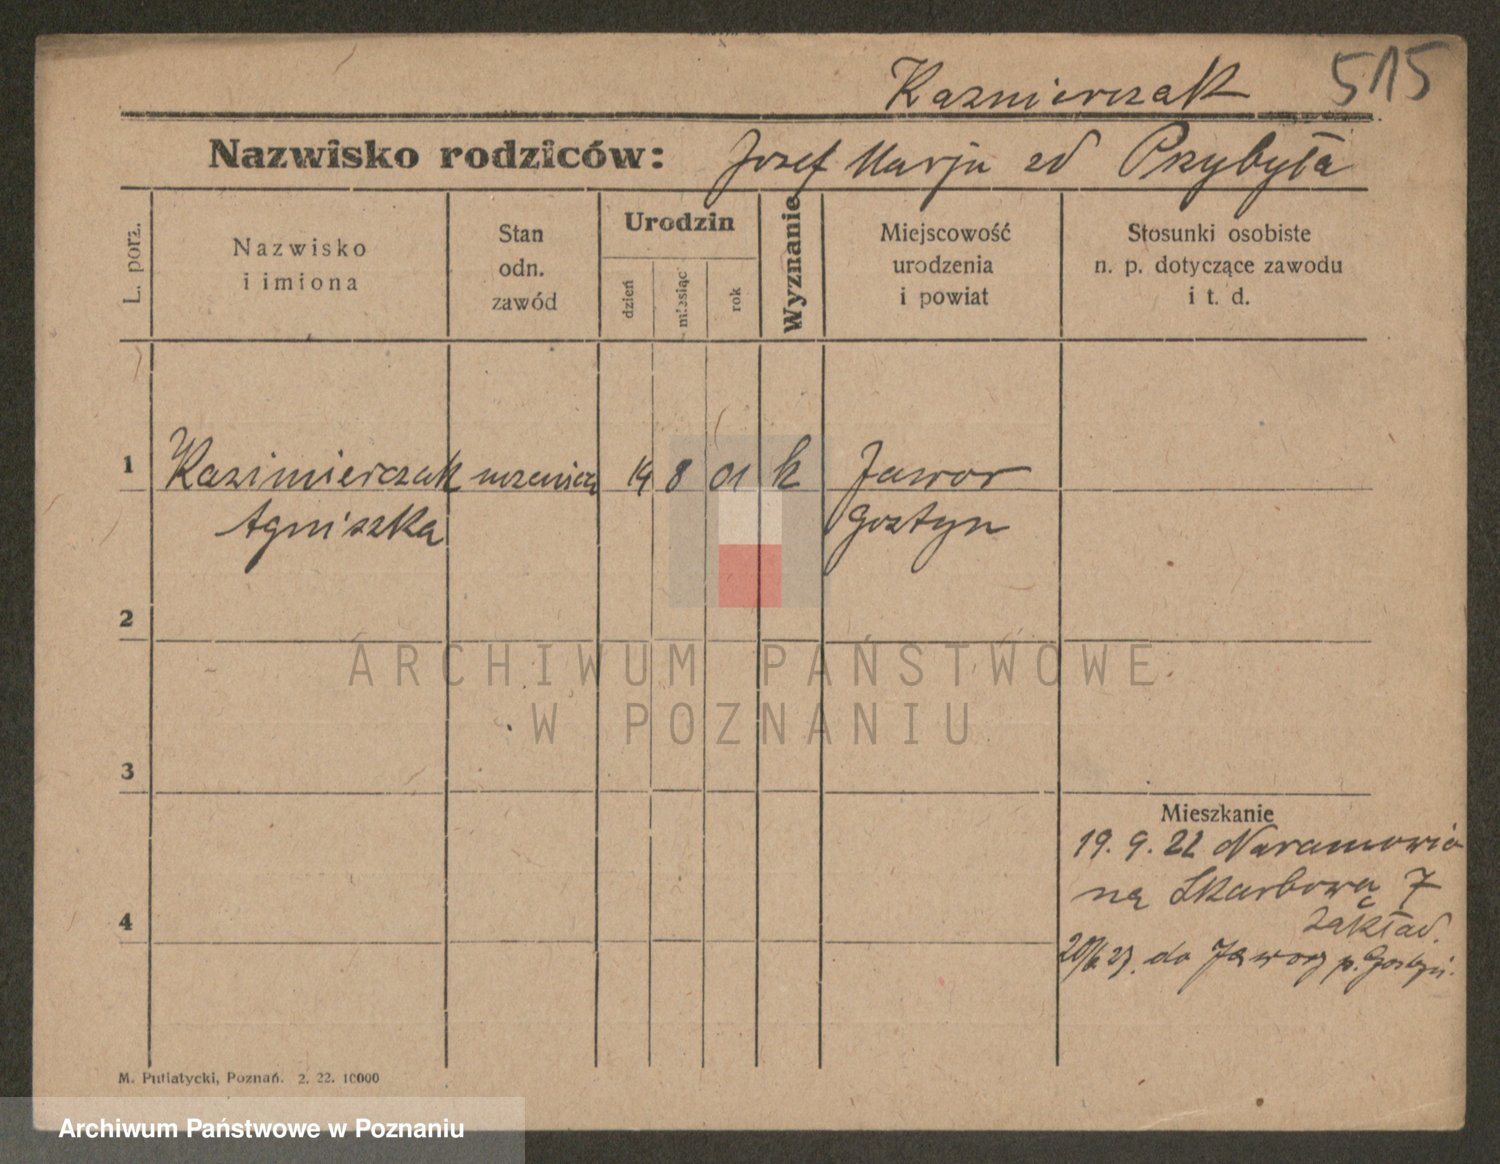 Kazmierczak 515
Nazwisko rodziców: Josef Marja zd Przybyła
L. porz.
Nazwisko
i imiona
Stan
odn.
zawód
Urodzin
dzień
miesiąc
rok
Wyznanie
Miejscowość
urodzenia
i powiat
Stosunki osobiste
n. p. dotyczące zawodu
i t. d.
1 Kazimierczak uczenica 14 8 01 k Jawor
Agniszka Gostyn
2
ARCHIWUM PAŃSTWOWE
W POZNANIU
3
Mieszkanie
19. 9. 22 Naramowic
na Skarbowa 7
4
zakład.
do Jawory p. Gostyń.
M. Putiatycki, Poznań. 2. 22. 10000
Archiwum Państwowe w Poznaniu